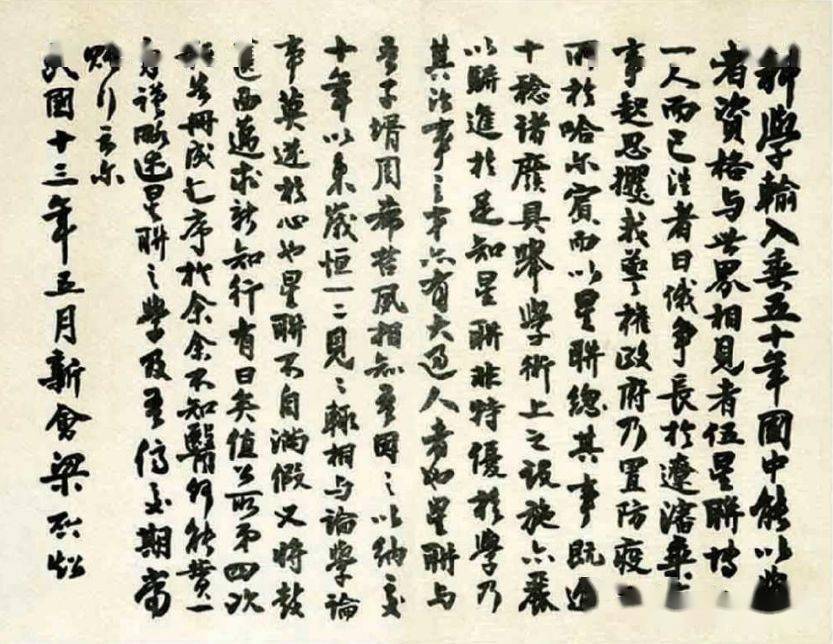 科學輸入垂五十年國中能以
者資格与世界相見者伍星聯博
一人而已往者日俄爭長於遼瀋
事起思攫我權政府乃置防疫
所於哈尔賓而以星聯總其事既
十稔诸廢具舉學術上之設施亦嚴
以駢進於是知星聯非特優於學乃
其治事之才亦有大過人者如星聯与
吾子壻周希哲夙相知吾因之以納交
十年以來歲恒一二見〻輒相与論學論
事莫逆於心也星聯不自滿假又將鼓
進西邁求新知行有日矣值公所第四次
告冊成乞序於余余不知醫何能贊一
謹略述星聯之學及吾儕交期當
贈行言尔
民國十三年五月新會梁啟超